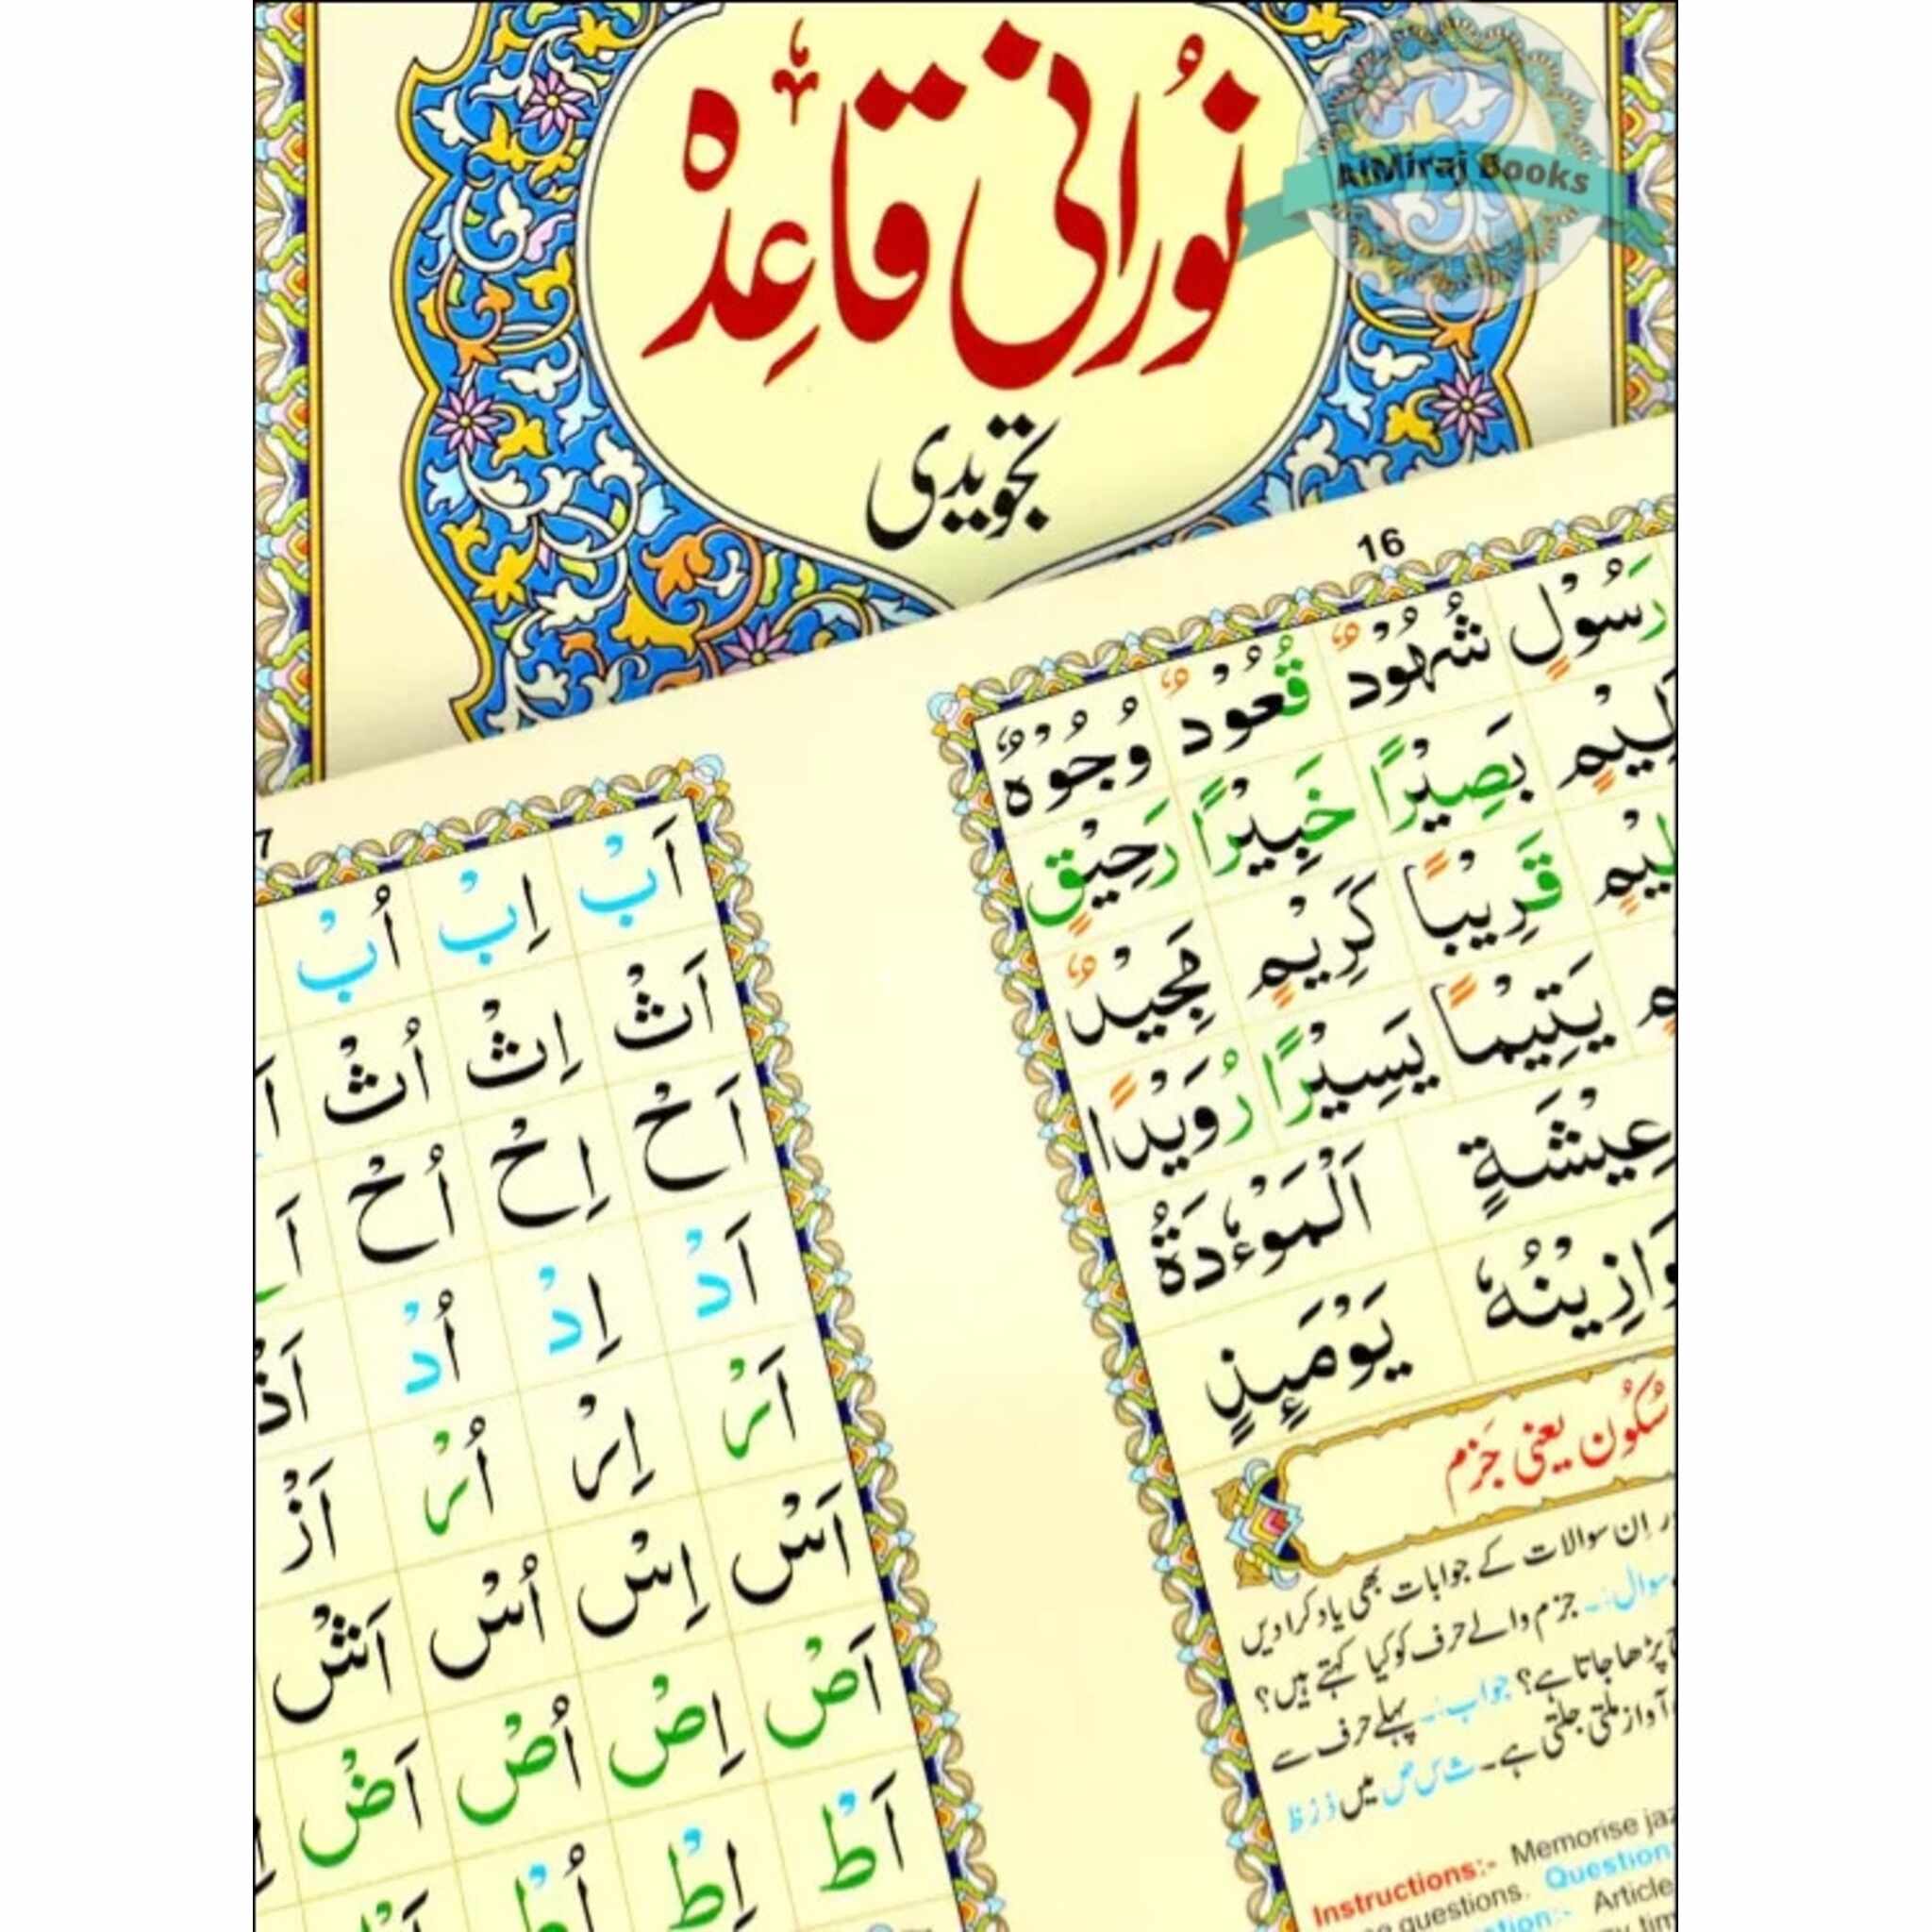 نُورانی قاعِدہ
تجویدی
AlMiraj Books
16
رَسُوْلٍ شُهُوْدٌ قُعُوْدٌ وُجُوْهٌ
بَصِيْرًا خَبِيْرًا رَحِيْقٍ
قَرِيْبًا كَرِيْمٍ مَجِيْدٌ
يَتِيْمًا يَسِيْرًا رُوَيْدًا
عِيْشَةٍ اَلْمَوْءٗدَةُ
يَوْمَىِٕذٍ
سُکُون یعنی جَزم
اِن سوالات کے جوابات بھی یاد کرادیں
سوال:۔ جزم والے حرف کو کیا کہتے ہیں؟
پڑھا جاتا ہے؟ جواب:۔ پہلے حرف سے
آواز ملتی جلتی ہے۔ ث س ص میں ذ ز ظ
Instructions:- Memorise
questions. Question
Article
7
اَبْ اِبْ اُبْ
اَثْ اِثْ اُثْ
اَحْ اِحْ اُحْ
اَدْ اِدْ اُدْ اَذْ
اَرْ اِرْ اُرْ اَزْ
اَسْ اِسْ اُسْ اَشْ
اَصْ اِصْ اُصْ اَضْ
اَطْ اِطْ اُطْ